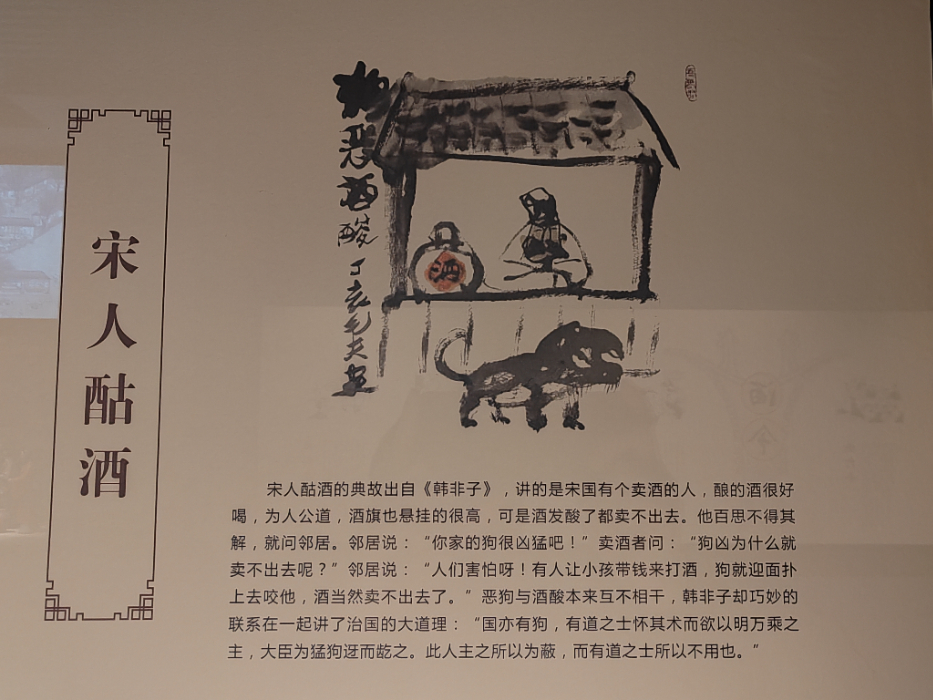 宋人酤酒
狗恶酒酸 丁亥毛夫画
酒
宋人酤酒的典故出自《韩非子》，讲的是宋国有个卖酒的人，酿的酒很好
喝，为人公道，酒旗也悬挂的很高，可是酒发酸了都卖不出去。他百思不得其
解，就问邻居。邻居说：“你家的狗很凶猛吧！”卖酒者问：“狗凶为什么就
卖不出去呢？”邻居说：“人们害怕呀！有人让小孩带钱来打酒，狗就迎面扑
上去咬他，酒当然卖不出去了。”恶狗与酒酸本来互不相干，韩非子却巧妙的
联系在一起讲了治国的大道理：“国亦有狗，有道之士怀其术而欲以明万乘之
主，大臣为猛狗迓而龁之。此人主之所以为蔽，而有道之士所以不用也。”